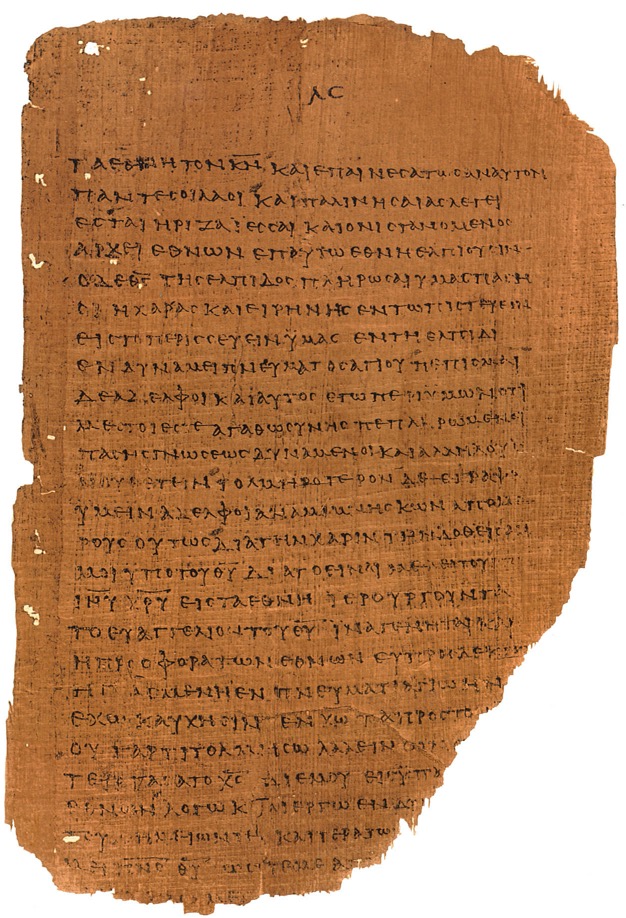 ΛϚ
ΤΑ ΕΘΝΗ ΤΟΝ Κ̅Ν̅ ΚΑΙ ΕΠΑΙΝΕϹΑΤΩϹΑΝ ΑΥΤΟΝ
ΠΑΝΤΕϹ ΟΙ ΛΑΟΙ ΚΑΙ ΠΑΛΙΝ ΗϹΑΙΑϹ ΛΕΓΕΙ
ΕϹΤΑΙ Η ΡΙΖΑ ΙΕϹϹΑΙ ΚΑΙ ΟΝΙϹΤΑΝΟΜΕΝΟϹ
ΑΡΧΕΙ ΕΘΝΩΝ ΕΠ ΑΥΤΩ ΕΘΝΗ ΕΛΠΙΟΥϹΙΝ
Ο ΔΕ Θ̅Ϲ̅ ΤΗϹ ΕΛΠΙΔΟϹ ΠΛΗΡΩϹΑΙ ΥΜΑϹ ΠΑϹΗ
ΧΑΡΑϹ ΚΑΙ ΕΙΡΗΝΗϹ ΕΝ ΤΩ ΠΙϹΤΕΥΕΙΝ
ΕΙϹ ΤΟ ΠΕΡΙϹϹΕΥΕΙΝ ΥΜΑϹ ΕΝ ΤΗ ΕΛΠΙΔΙ
ΕΝ ΔΥΝΑΜΕΙ ΠΝΕΥΜΑΤΟϹ ΑΓΙΟΥ ΠΕΠΙϹΜΑΙ
ΔΕ ΑΔΕΛΦΟΙ ΚΑΙ ΑΥΤΟϹ ΕΓΩ ΠΕΡΙ ΥΜΩΝ ΟΤΙ
ΜΕϹΤΟΙ ΕϹΤΕ ΑΓΑΘΩϹΥΝΗϹ ΠΕΠΛΗΡΩΜΕΝΟΙ
ΠΑϹΗϹ ΓΝΩϹΕΩϹ ΔΥΝΑΜΕΝΟΙ ΚΑΙ ΑΛΛΗΛΟΥϹ
ΤΟΛΜΗΡΟΤΕΡΟΝ ΔΕ ΕΓΡΑΨΑ
ΥΜΕΙΝ ΑΔΕΛΦΟΙ ΑΝΑΜΙΜΝΗϹΚΩΝ ΑΠΟ
ΡΟΥϹ ΟΥΤΩϹ ΔΙΑ ΤΗΝ ΧΑΡΙΝ ΤΗΝ ΔΟΘΕΙϹΑΝ
ΜΟΙ ΥΠΟ ΤΟΥ Θ̅Υ̅ ΔΙΑ ΤΟ ΕΙΝΑΙ ΜΕ ΛΕΙΤΟΥΡΓΟΝ
Ι̅Η̅Υ̅ Χ̅Ρ̅Υ̅ ΕΙϹ ΤΑ ΕΘΝΗ ΙΕΡΟΥΡΓΟΥΝΤΑ
ΤΟ ΕΥΑΓΓΕΛΙΟΝ ΤΟΥ Θ̅Υ̅ ΙΝΑ ΓΕΝΗΤΑΙ ΚΑΙ
Η ΠΡΟϹΦΟΡΑ ΤΩΝ ΕΘΝΩΝ ΕΥΠΡΟϹΔΕΚΤΟϹ
ΗΓΙΑϹΜΕΝΗ ΕΝ ΠΝΕΥΜΑΤΙ ΑΓΙΩ ΗΝ
ΕΧΩ ΚΑΥΧΗϹΙΝ ΕΝ Χ̅Ω̅ ΤΑ ΠΡΟϹ ΤΟ
ΟΥ ΓΑΡ ΤΙ ΤΟΛΜΗϹΩ ΛΑΛΕΙΝ
Χ̅Ϲ̅ ΔΙ ΕΜΟΥ ΕΙϹ ΥΠΑ
ΛΟΓΩ ΚΑΙ ΕΡΓΩ ΕΝ ΔΥ
ΚΑΙ ΤΕΡΑΤΩ
Θ̅Υ̅ ΩϹΤΕ ΜΕ